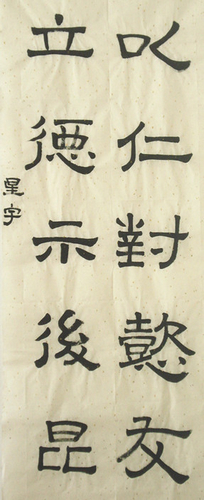 以仁對懿友
立德示後昆
星字